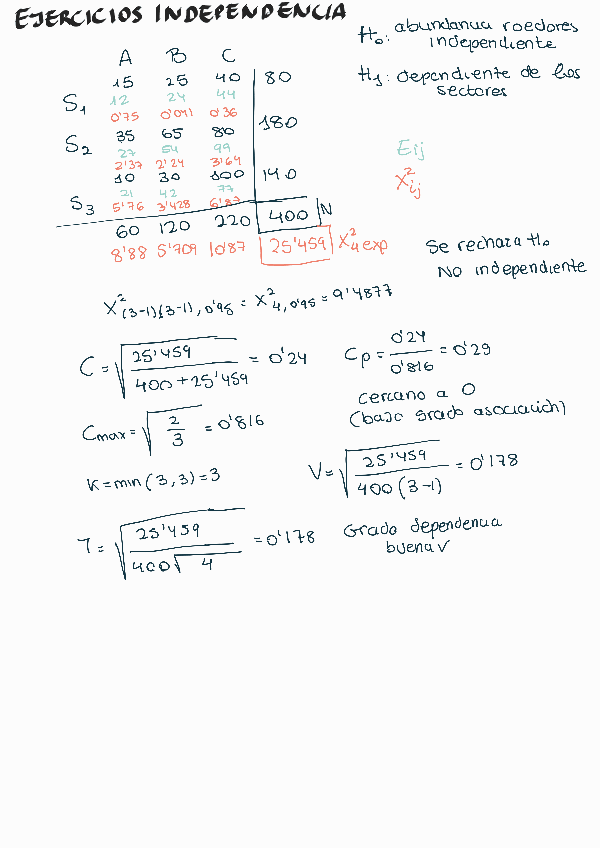 EJERCICIOS INDEPENDENCIA
H₀: abundancia roedores
independiente
H₁: dependiente de los
sectores
A B C
15 25 40 80
S₁ 12 24 44
0'75 0'041 0'36
180
S₂ 35 65 80
27 54 99
2'37 2'24 3'64
10 30 100 140
21 42 77
S₃ 5'76 3'428 6'87
60 120 220 400 N
8'88 5'709 10'87 25'459 X²₄ exp
Eij
X²ij
Se rechaza H₀
No independiente
X²(3-1)(3-1), 0'95 = X²4, 0'95 = 9'4877
C = √(25'459 / (400 + 25'459)) = 0'24
Cp = 0'24 / 0'816 = 0'29
cercano a 0
(bajo grado asociación)
Cmax = √(2/3) = 0'816
K = min (3, 3) = 3
V = √(25'459 / (400 (3-1))) = 0'178
T = √(25'459 / (400 √4)) = 0'178
Grado dependencia
buena V